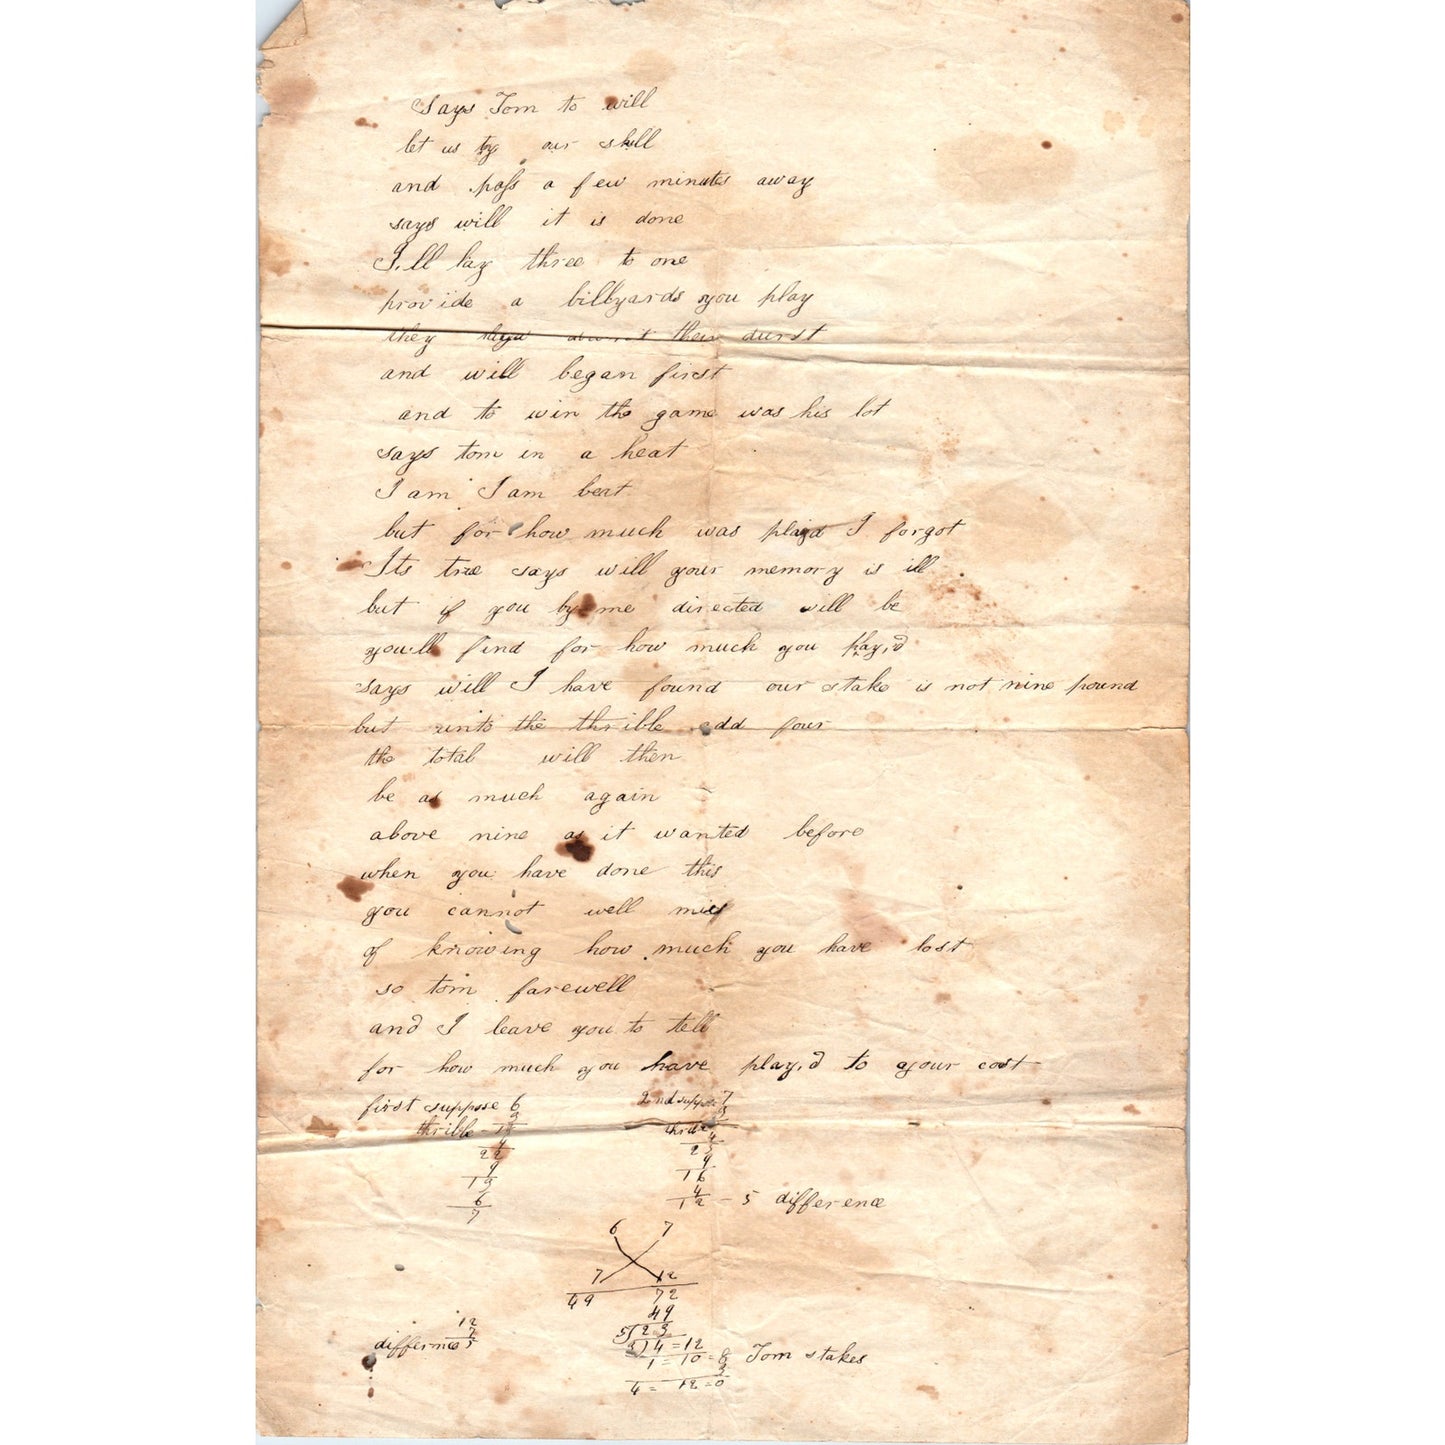 Says Tom to will
let us try our skill
and pass a few minutes away
says will it is done
I,ll lay three to one
provide a billyards you play
they their durst
and will began first
and to win the game was his lot
says tom in a heat
I am I am beat
but for how much was playd I forgot
Its true says will your memory is ill
but if you by me directed will be
you'll find for how much you play,d
says will I have found our stake is not nine pound
but unto the thrible add four
the total will then
be as much again
above nine as it wanted before
when you have done this
you cannot well miss
of knowing how much you have lost
so tom farewell
and I leave you to tell
for how much you have play,d to your cost
first suppose 6 2nd suppose 7
3 3
thrible 18
4 4
22 25
9 9
13 16
6 4
7 12 - 5 difference
6 7
7 12
49 72
12 49
7 5)23
difference 5 3)4=12
1=10=8 Tom stakes
3
4= 12=0